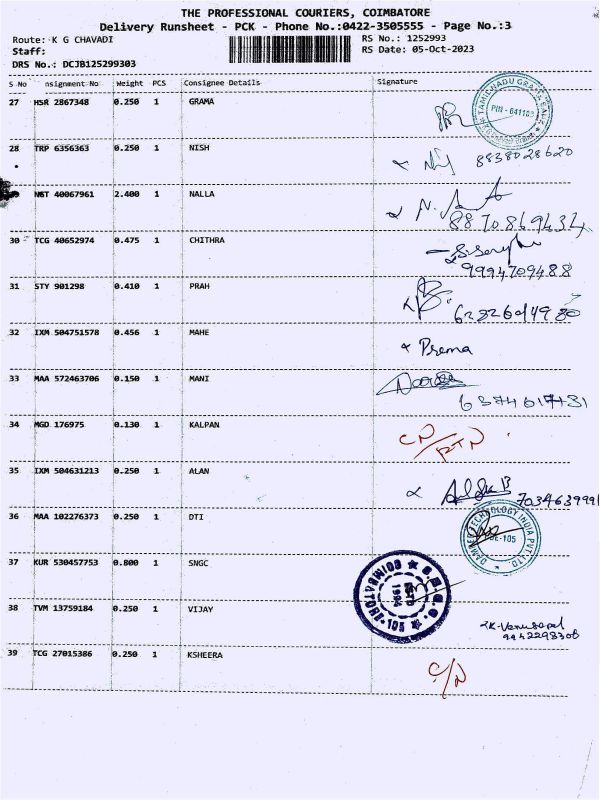 THE PROFESSIONAL COURIERS, COIMBATORE
Delivery Runsheet - PCK - Phone No.:0422-3505555 - Page No.:3
Route: K G CHAVADI RS No.: 1252993
Staff: RS Date: 05-Oct-2023
DRS No.: DCJB125299303
S No nsignment No Weight PCS Consignee Details Signature
27 HSR 2867348 0.250 1 GRAMA
TAMILNADU GRAMA BANK
PIN - 641105
28 TRP 6356363 0.250 1 NISH
8838028620
NGT 40067961 2.400 1 NALLA
8870869434
30 TCG 40652974 0.475 1 CHITHRA
9994709488
31 STY 901298 0.410 1 PRAH
32 IXM 504751578 0.456 1 MAHE
Prema
33 MAA 572463706 0.150 1 MANI
6374617431
34 MGD 176975 0.130 1 KALPAN
CN/RTN
35 IXM 504631213 0.250 1 ALAN
7034639991
36 MAA 102276373 0.250 1 DTI
TECHNOLOGY INDIA PVT LTD
37 KUR 530457753 0.800 1 SNGC
S.N.G.C.
COIMBATORE
ESTD
1994
105
38 TVM 13759184 0.250 1 VIJAY
K-Venugopal
9442298308
39 TCG 27015386 0.250 1 KSHEERA
C/N